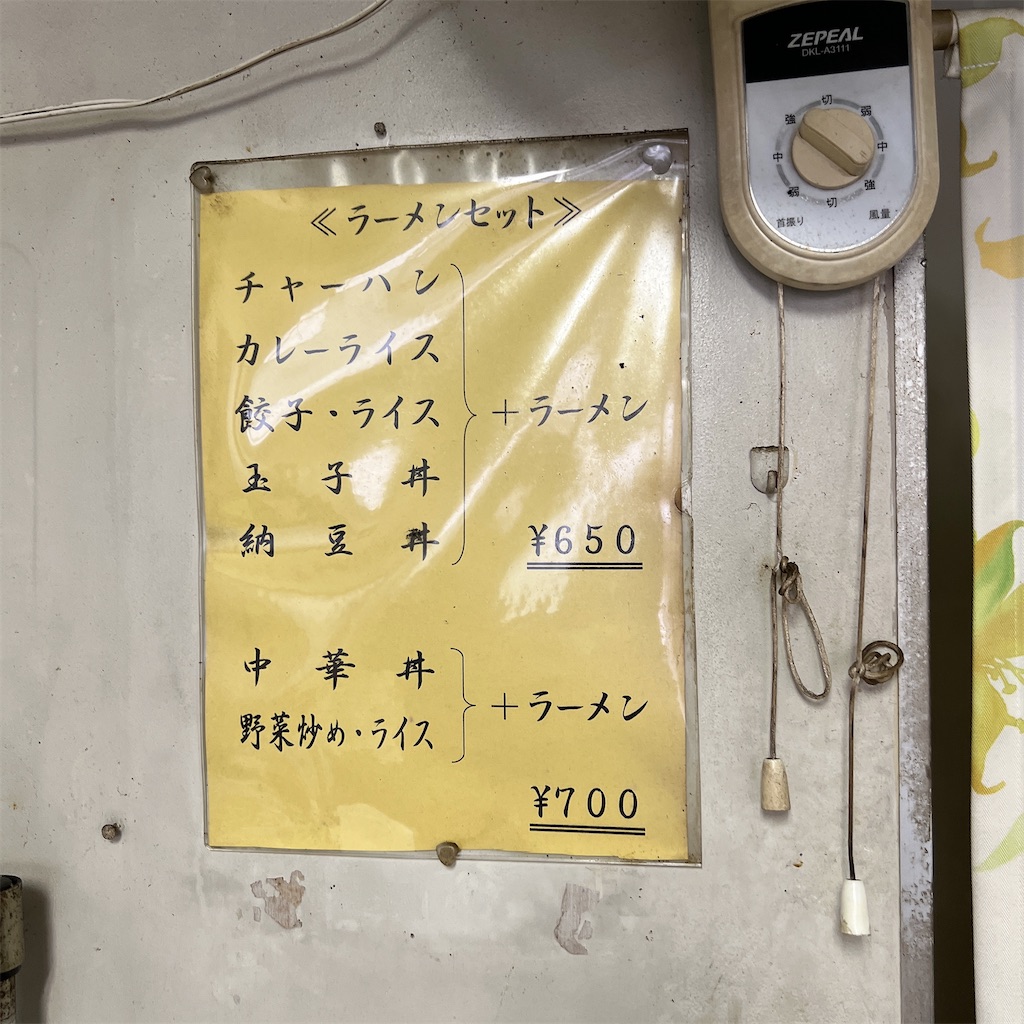 ZEPEAL
DKL-A3111
切
強 弱
中 中
弱 強
切
首振り 風量
≪ラーメンセット≫
チャーハン
カレーライス
餃子・ライス +ラーメン
玉子丼
納豆丼 ¥650
中華丼
野菜炒め・ライス +ラーメン
¥700